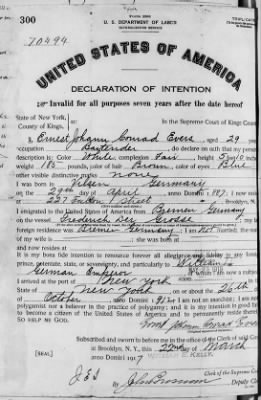 300
U. S. DEPARTMENT OF LABOR
70494
UNITED STATES OF AMERICA
DECLARATION OF INTENTION
Invalid for all purposes seven years after the date hereof
State of New York,
County of Kings,
In the Supreme Court of Kings County
I, Ernest Johann Conrad Evers, aged 29 years,
occupation Bartender, do declare on oath that my personal
description is: Color White, complexion Fair, height 5 feet 10 inches,
weight 185 pounds, color of hair Brown, color of eyes Blue
other visible distinctive marks none
I was born in Vilsen Germany
on the 29th day of April, anno Domini 1887; I now reside
at 227 Fulton Street, Brooklyn, N. Y.
I emigrated to the United States of America from Bremen Germany
on the vessel Frederich Der Grosse; my last
foreign residence was Bremen Germany. I am not married; the name of
my wife is; she was born at
and now resides at
It is my bona fide intention to renounce forever all allegiance and fidelity to any foreign
prince, potentate, state, or sovereignty, and particularly to William II
German Emperor, of whom I am now a subject;
I arrived at the port of New York, in the
State of New York, on or about the 26th day
of October, anno Domini; I am not an anarchist; I am not a
polygamist nor a believer in the practice of polygamy; and it is my intention in good faith
to become a citizen of the United States of America and to permanently reside therein:
SO HELP ME GOD.
Ernst Johann Conrad Evers
Subscribed and sworn to before me in the office of the Clerk of said Court
at Brooklyn, N. Y., this 22nd day of March
anno Domini 1917
WILLIAM E. KELLY
[SEAL]
Clerk of the Supreme Court